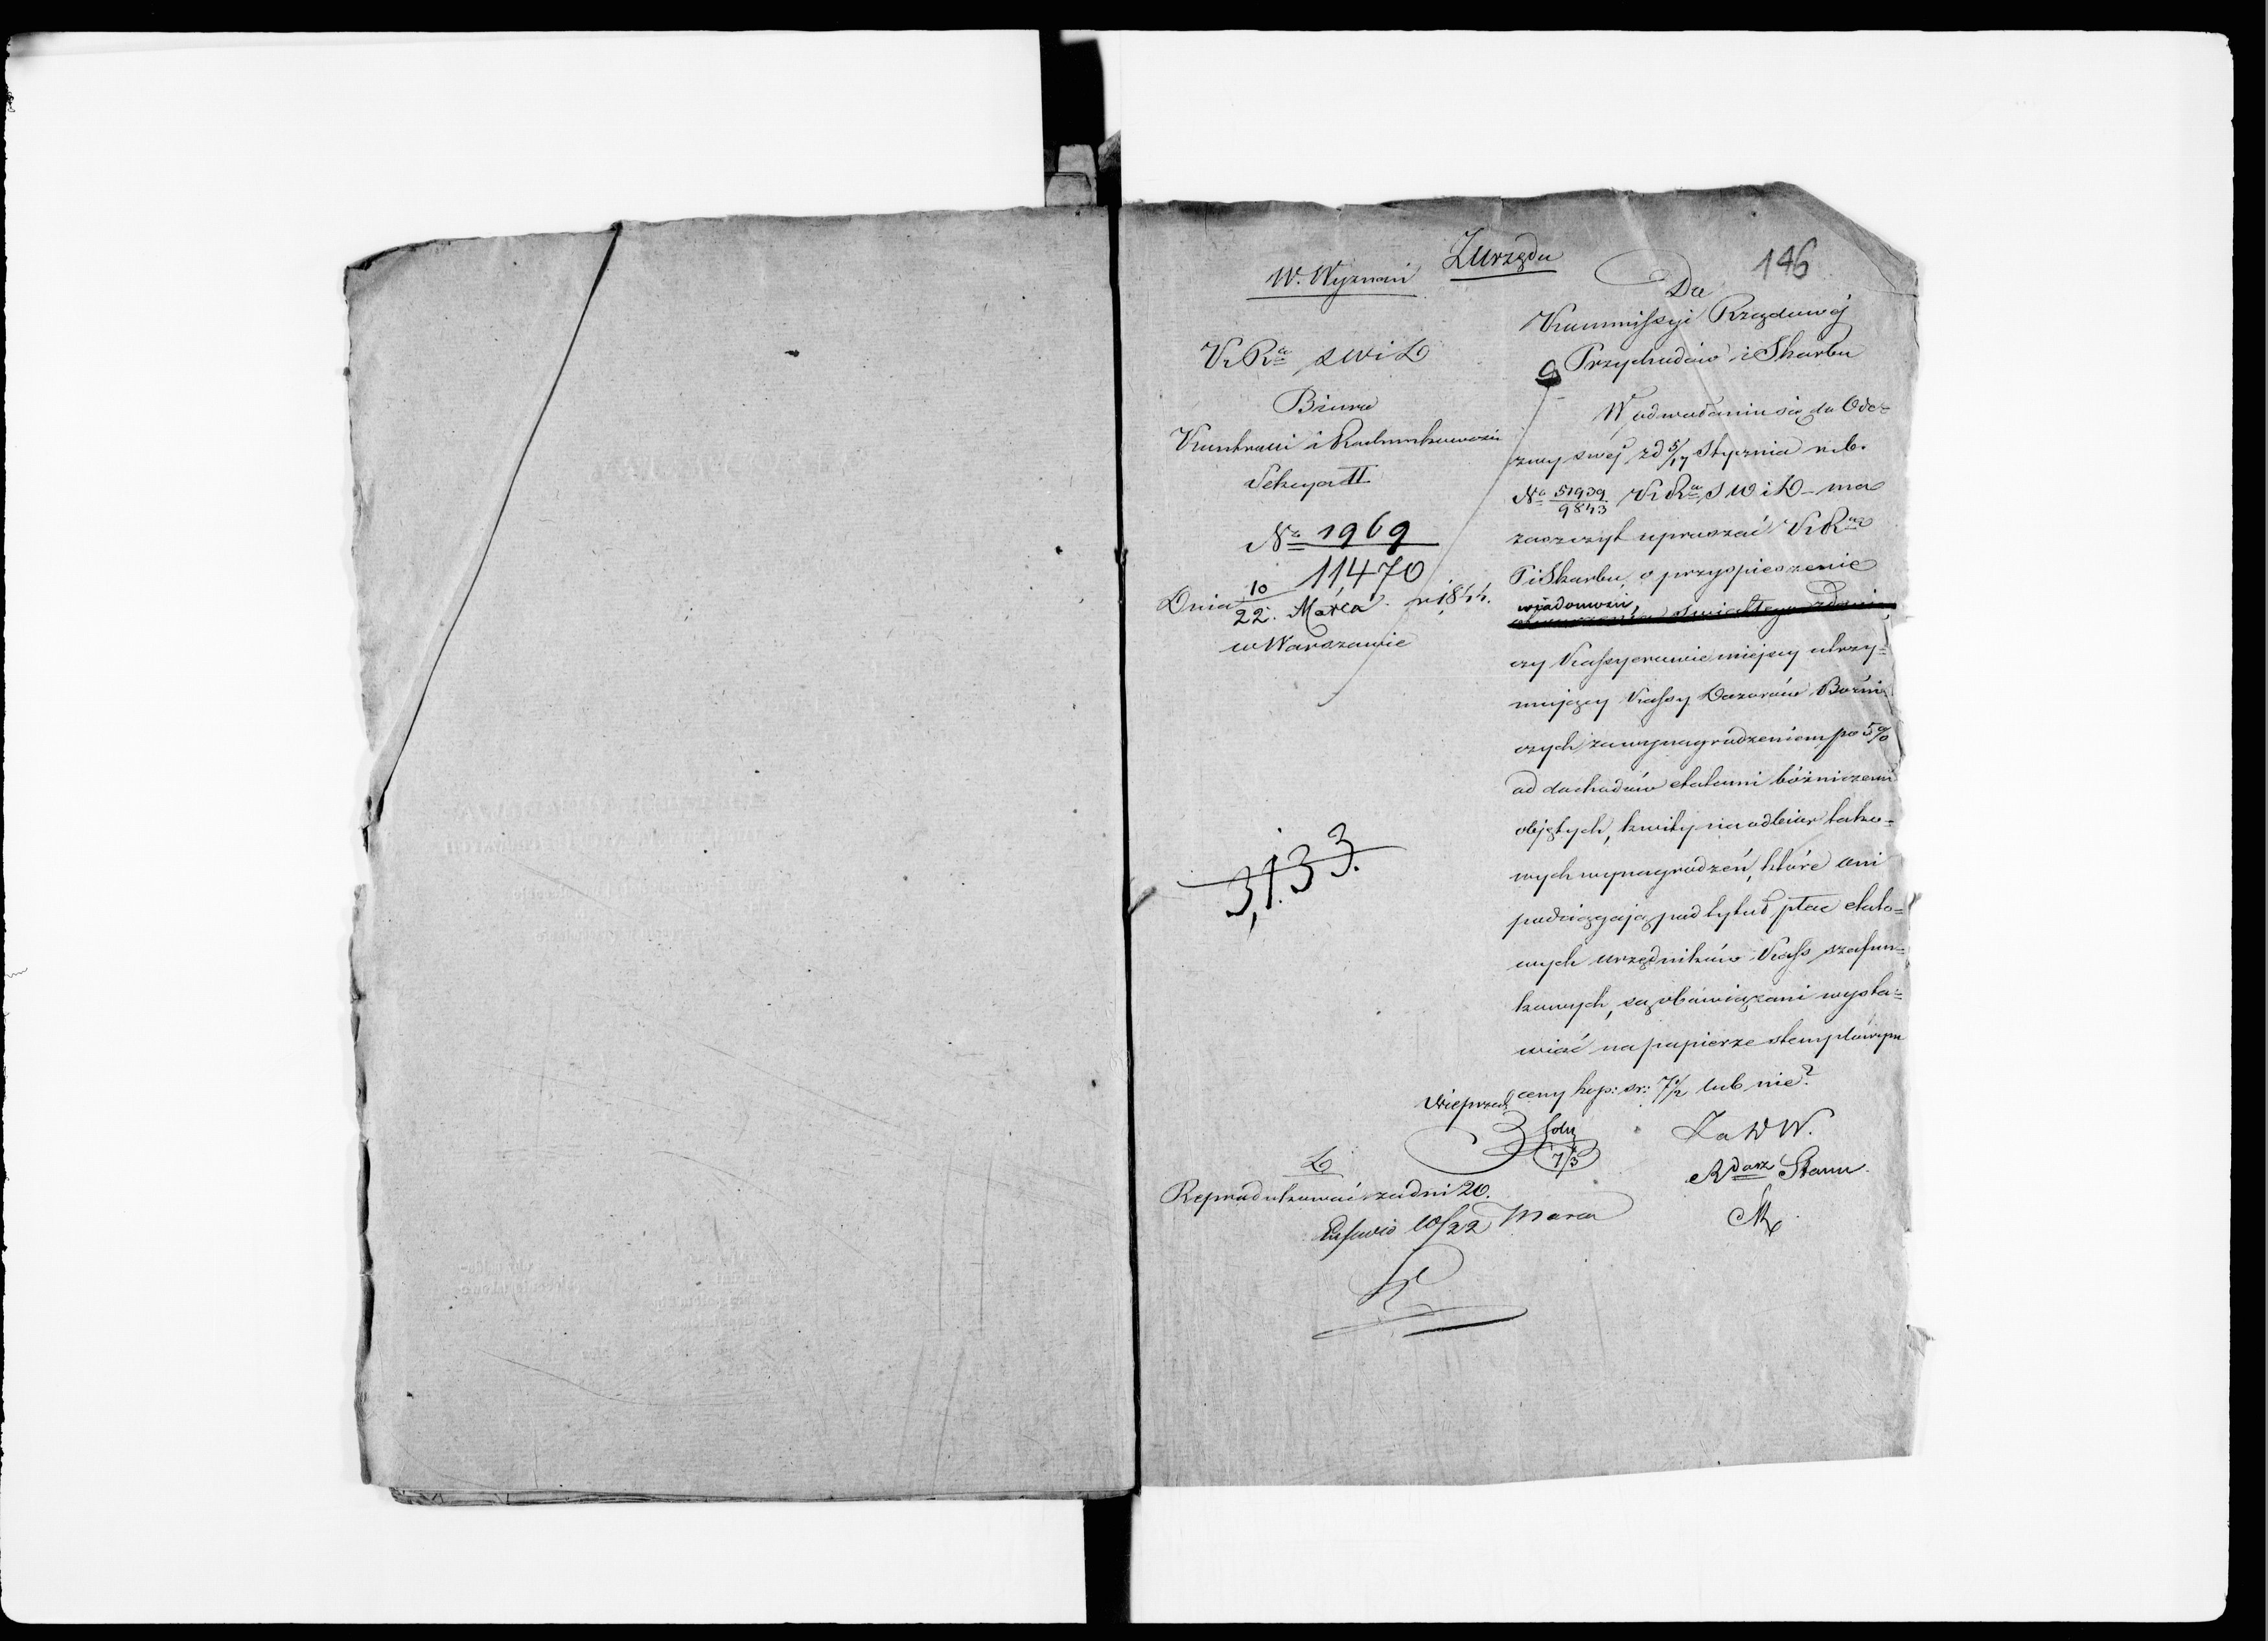 146
Z Urzędu
W. Wyznań
K. R.ᵃ S W i D
Biuro
Kontroli i Rachunkowości
Sekcya II
Nº 1969
11470
Dnia 10/22 Marca r. 1844.
w Warszawie
3,133.
Do
Kommissyi Rządowéj
Przychodów i Skarbu
W odwołaniu się do Ode=
zwy swéj zd 5/17 Stycznia r. b.
Nº 51939/9843 K. R.ᵃ S W i D – ma
zaszczyt upraszać K. R.ᵃ
P i Skarbu o przyspieszenie
wiadomości,
czy Kassyerowie miejscy utrzy=
mujący Kassy Dozorów Bożni
czych za wynagrodzeniem po 5%
od dochodów etatami bóżniczemi
objętych, kwity na odbiór tako=
wych wynagrodzeń, które oni
podciągają pod tytuł płac etato=
wych urzędników Kass szafun=
kowych, są obowiązani wysta=
wiać na papierze stemplowym
ceny kop: sr: 7½ lub nie?
Za D W.
R darz Stanu.
D
Reprodukować za dni 20.
10/22 Marca